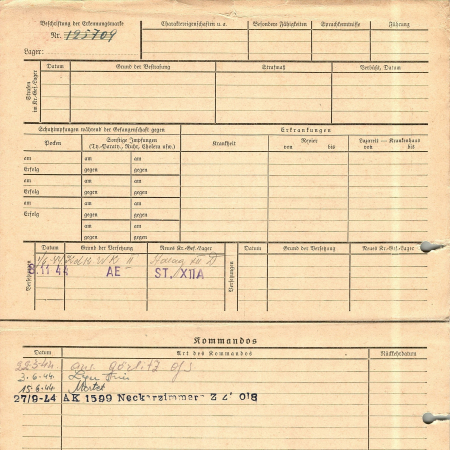 Beschriftung der Erkennungsmarke
Nr. 125709
Lager:
Charaktereigenschaften u.a.
Besondere Fähigkeiten
Sprachkenntnisse
Führung
Strafen in Kr.-Gef.-Lager
Datum
Grund der Bestrafung
Strafmaß
Verbüßt, Datum
Schutzimpfungen während der Gefangenschaft gegen
Erkrankungen
Pocken
Sonstige Impfungen
(Ty.-Paraty., Ruhr, Cholera usw.)
Krankheit
Revier
von bis
Lazarett — Krankenhaus
von bis
am am am
Erfolg gegen gegen
am am am
Erfolg gegen gegen
am am am
Erfolg gegen gegen
am am
gegen gegen
Versetzungen
Datum
Grund der Versetzung
Neues Kr.-Gef.-Lager
Versetzungen
Datum
Grund der Versetzung
Neues Kr.-Gef.-Lager
11 44 AE ST./XIIA
Kommandos
Datum
Art des Kommandos
Rückkehrdatum
22.3.44. Görlitz
3.6.44.
15.6.44.
27/9-44 AK 1599